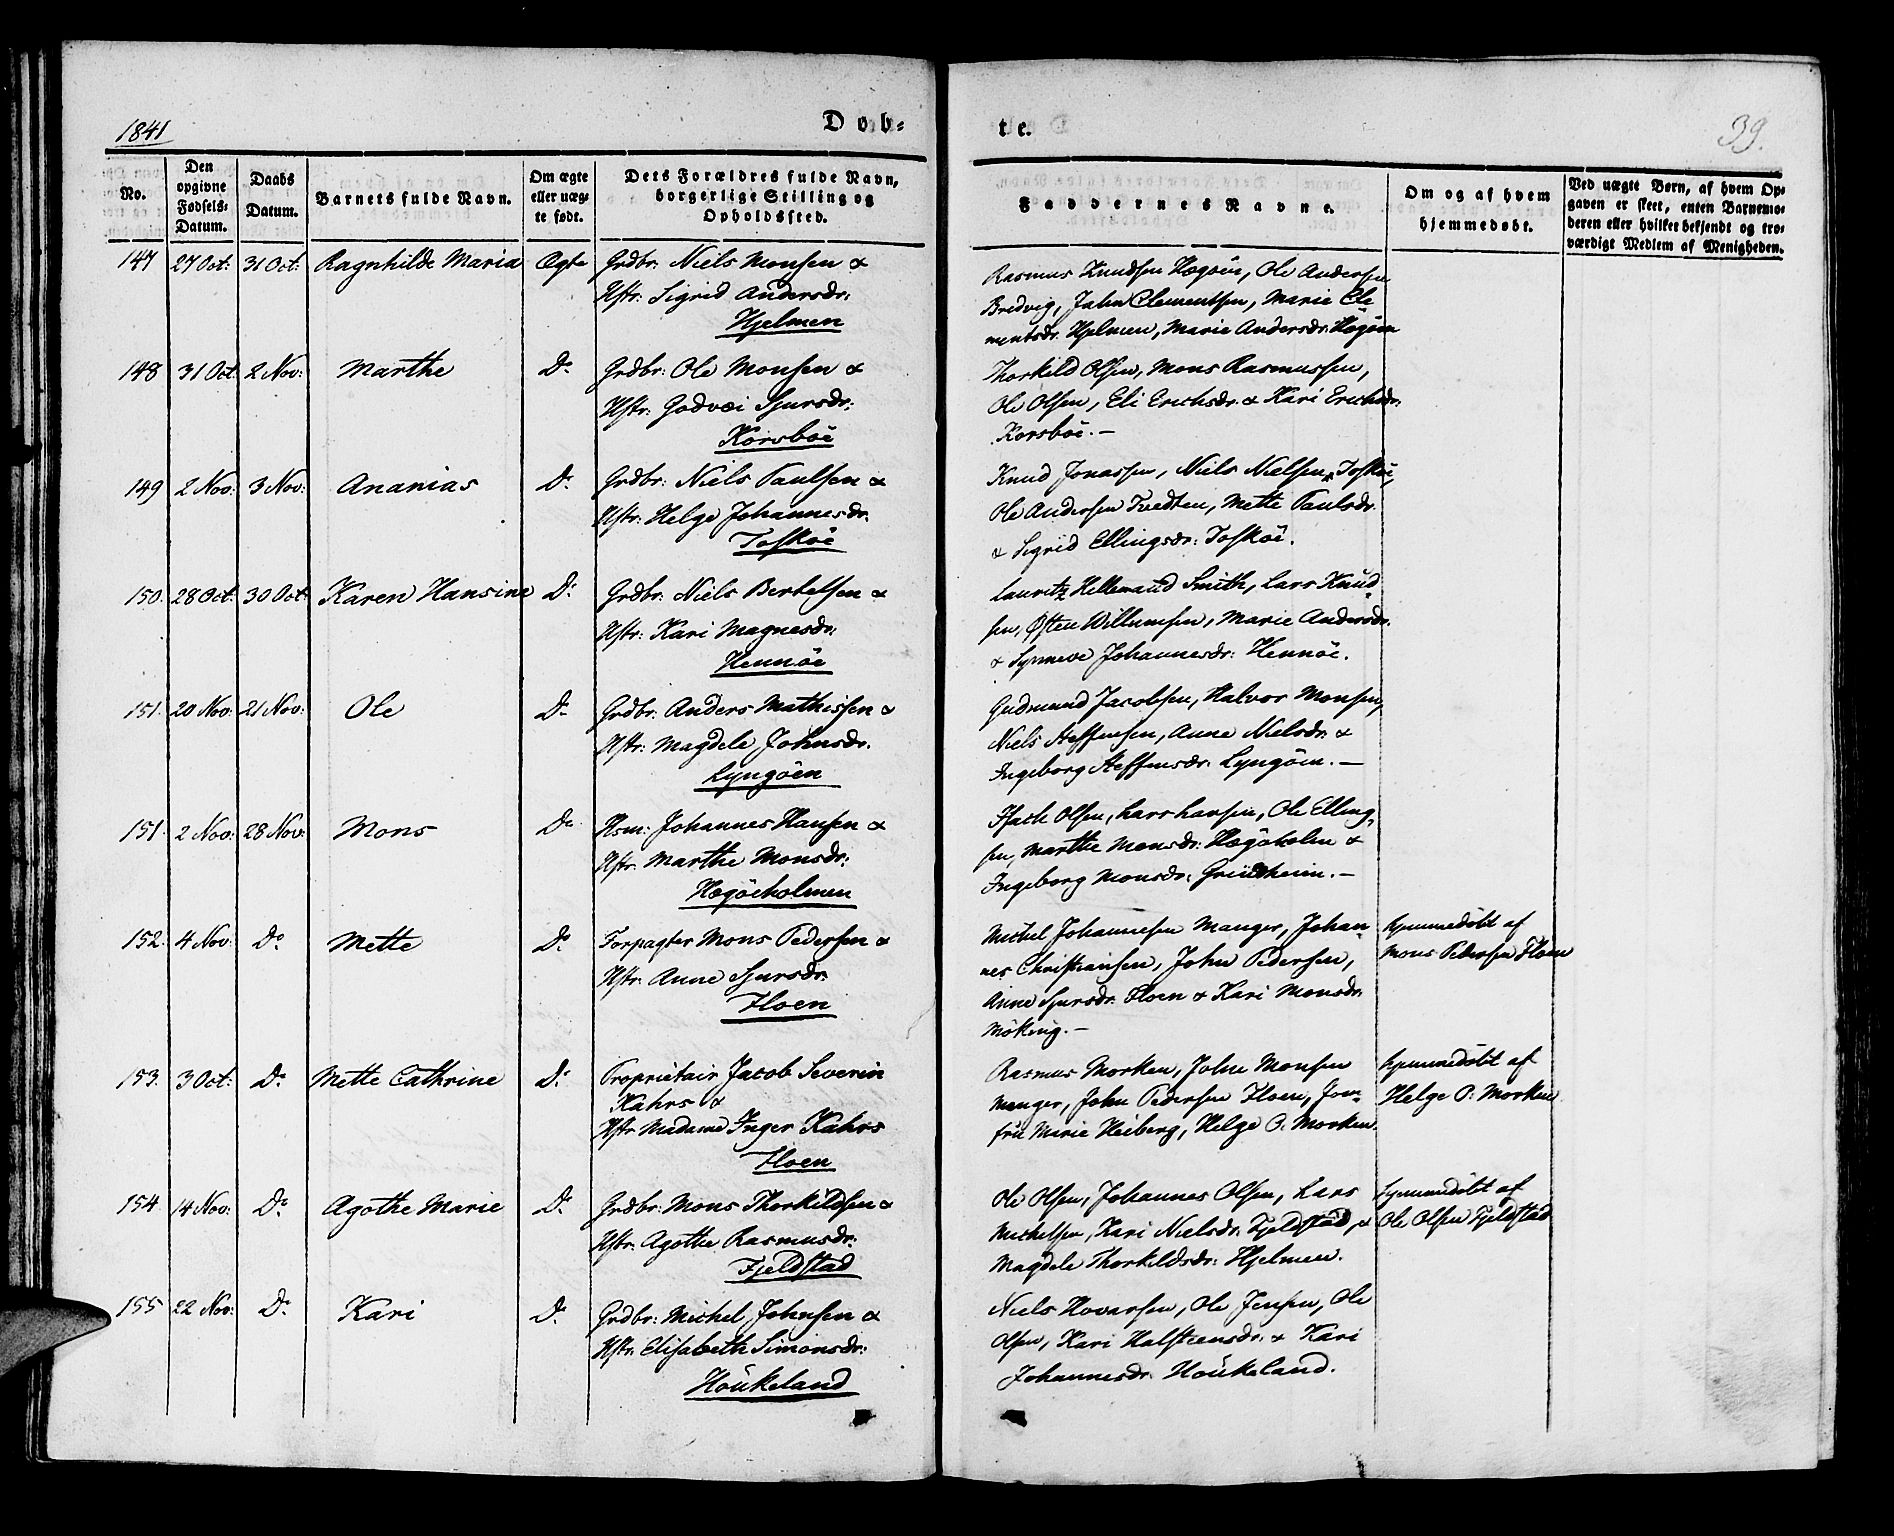 1841
Døb-
te.
39.
No.
Den opgivne Fødsels-Datum.
Daabs Datum.
Barnets fulde Navn.
Om ægte eller uægte født.
Dets Forældres fulde Navn, borgerlige Stilling og Opholdssted.
Faddernes Navne.
Om og af hvem hjemmedøbt.
Ved uægte Børn, af hvem Opgaven er skeet, enten Barnemoderen eller hvilket bekjendt og troværdigt Medlem af Menigheden.
147 27 Oct: 31 Oct: Ragnhilde Maria Ægte Grdbr: Niels Monsen &
Hstr: Sigrid Andersdr:
Hjelmen
Rasmus Knudsen Hægøen, Ole Andersen
Bredvig, John Clementsen, Marie Cle
mentsdr: Hjelmen, Marie Andersdr: Hægøen
148 31 Oct: 2 Nov: Marthe Do Grdbr: Ole Monsen &
Hstr: Godvei Sjursdr:
Korsbøe
Thorkild Olsen, Mons Rasmussen,
Ole Olsen, Eli Erichsdr: & Kari Erichsdr:
Korsbøe. –
149 2 Nov: 3 Nov: Ananias Do Grdbr: Niels Paulsen &
Hstr: Helge Johannesdr:
Toskøe
Knud Jonassen, Niels Nielsen Toskøe,
Ole Andersen Tvedten, Mette Paulsdr:
& Sigrid Ellingsdr: Toskøe.
150. 28 Oct: 30 Oct: Karen Hansine Do Grdbr: Niels Bertelsen &
Hstr: Kari Magnesdr:
Hennøe
Lauritz Hellemand Smith, Lars Knud-
sen, Østen Willumsen, Marie Andersdr:
& Synneve Johannesdr: Hennøe.
151. 20 Nov: 21 Nov: Ole Do Grdbr: Anders Mathissen &
Hstr: Magdele Johnsdr.
Lyngøen
Gudmund Jacobsen, Halvor Monsen,
Niels Steffensen, Anne Nielsdr: &
Ingeborg Steffensdr: Lyngøen. –
151. 2 Nov: 28 Nov: Mons Do Hsm: Johannes Hansen &
Hstr: Marthe Monsdr:
Hægøeholmen
Isach Olsen, Lars Larsen, Ole Elling-
sen, Marthe Monsdr: Hægøholm &
Ingeborg Monsdr: Grindheim. –
152. 4 Nov: Do Mette Do Forpagter Mons Pedersen &
Hstr: Anne Sjursdr:
Floen
Michel Johannesen Manger, Johan-
nes Christiansen, John Pedersen,
Anne Sjursdr: Floen & Kari Monsdr:
Møking. –
hjemmedøbt af
Mons Pedersen Floen
153. 3 Oct: Do Mette Cathrine Do Proprietair Jacob Severin
Kahrs &
Hstr Madame Inger Kahrs
Floen
Rasmus Morken, John Monsen
Manger, John Pedersen Floen, Jom-
fru Marie Heiberg, Helge P. Morken.
hjemmedøbt af
Helge P: Morken
154. 14 Nov: Do Agothe Marie Do Grdbr: Mons Thorkildsen &
Hstr: Agothe Rasmusdr:
Fjeldstad
Ole Olsen, Johannes Olsen, Lars
Michelsen, Kari Nielsdr: Fjeldstad &
Magdele Thorkildsdr: Hjelmen.
hjemmedøbt af
Ole Olsen Fjeldstad
155 22 Nov: Do Kari Do Grdbr: Michel Johnsen &
Hstr: Elisabeth Simonsdr:
Houkeland
Niels Hovarsen, Ole Jensen, Ole
Olsen, Kari Halsteensdr: & Kari
Johannesdr: Houkeland.